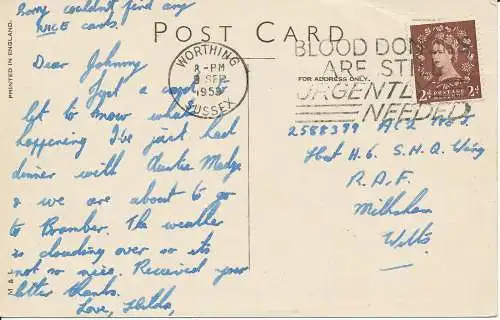 Sorry couldn't find any
NICE cards.
POST CARD
PRINTED IN ENGLAND.
Dear Johnny
Just a card to
let to know what's
happening I've just had
dinner with Auntie Madge
& we are about to go
to Bramber. The weather
is clouding over so its
not so nice. Received your
letter thanks.
Love, Hilda,
WORTHING
8-PM
SEP
195
SUSSEX
BLOOD DONORS
ARE STILL
URGENTLY
NEEDED
FOR ADDRESS ONLY.
POSTAGE
2d 2d
2588399 AC2
H.6. S.H.Q. Wing
R.A.F.
Melksham
Wilts